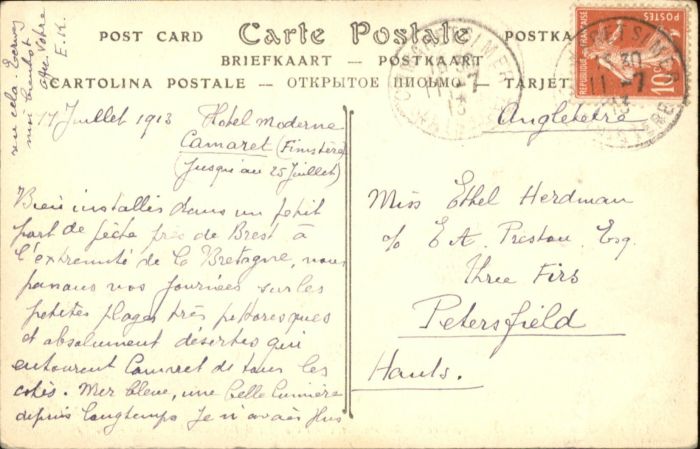 POST CARD Carte Postale POSTKA
BRIEFKAART — POSTKAART
CARTOLINA POSTALE — ОТКРЫТОЕ ПИСЬМО — TARJET
REPUBLIQUE FRANÇAISE
POSTES
10c
11 -7
13
11 -7
13
vu cela. Ecrivez
moi
votre
E. K.
Juillet 1913 Hotel Moderne
Camaret (Finistère)
(Jusqu'au 25 Juillet)
Bien installés dans un petit
port de pêche près de Brest à
l'extremité de la Bretagne, nous
passons nos journées sur les
petites plages très pittoresques
et absolument désertes qui
entourent Camaret de tous les
cotés. Mer bleue, une belle lumière
depuis longtemps je n'avais plus
Angleterre
Miss Ethel Herdman
c/o E A. Preston, Esq.
Three Firs
Petersfield
Hants.